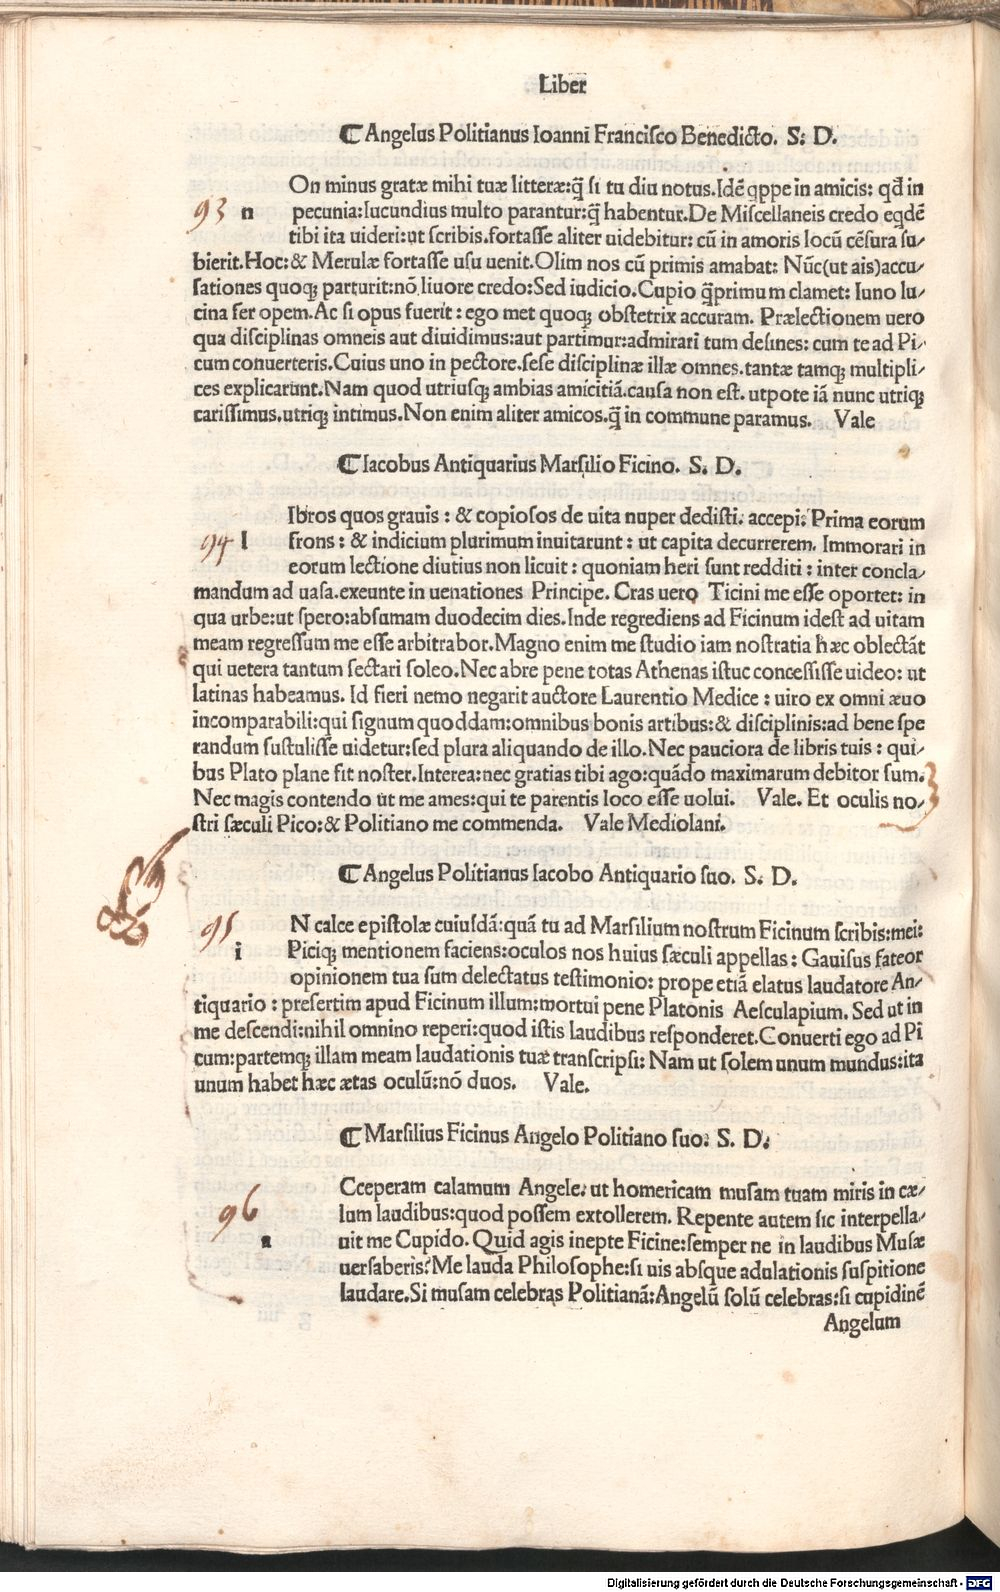 Liber
¶ Angelus Politianus Ioanni Francisco Benedicto. S. D.
On minus gratæ mihi tuæ litteræ:q̃ si tu diu notus.Idẽ qppe in amicis: qđ in
93 n pecunia:Iucundius multo parantur:q̃ habentur.De Miscellaneis credo eqdẽ
tibi ita uideri:ut scribis.fortasse aliter uidebitur: cũ in amoris locũ cẽsura su/
bierit.Hoc:& Merulæ fortasse usu uenit.Olim nos cũ primis amabat: Nũc(ut ais)accu/
sationes quoq; parturit:nõ liuore credo:Sed iudicio.Cupio q̃primum clamet: Iuno lu/
cina fer opem.Ac si opus fuerit : ego met quoq; obstetrix accuram. Prælectionem uero
qua disciplinas omneis aut diuidimus:aut partimur:admirari tum desines: cum te ad Pi/
cum conuerteris.Cuius uno in pectore.sese disciplinæ illæ omnes.tantæ tamq; multipli/
ces explicarunt.Nam quod utriusq; ambias amicitiã.causa non est. utpote iã nunc utriq;
carissimus.utriq; intimus.Non enim aliter amicos.q̃ in commune paramus. Vale
¶ Iacobus Antiquarius Marsilio Ficino. S. D.
Ibros quos grauis : & copiosos de uita nuper dedisti. accepi. Prima eorum
94 l frons : & indicium plurimum inuitarunt : ut capita decurrerem. Immorari in
eorum lectione diutius non licuit : quoniam heri sunt redditi : inter concla/
mandum ad uasa.exeunte in uenationes Principe. Cras uero Ticini me esse oportet: in
qua urbe:ut spero:absumam duodecim dies.Inde regrediens ad Ficinum idest ad uitam
meam regressum me esse arbitrabor.Magno enim me studio iam nostratia hæc oblectãt
qui uetera tantum sectari soleo.Nec abre pene totas Athenas istuc concessisse uideo: ut
latinas habeamus. Id fieri nemo negarit auctore Laurentio Medice : uiro ex omni æuo
incomparabili:qui signum quoddam:omnibus bonis artibus:& disciplinis:ad bene spe
randum sustulisse uidetur:sed plura aliquando de illo.Nec pauciora de libris tuis : qui/
bus Plato plane fit noster.Interea:nec gratias tibi ago:quãdo maximarum debitor sum.
Nec magis contendo ut me ames:qui te parentis loco esse uolui. Vale. Et oculis no/
stri sæculi Pico:& Politiano me commenda. Vale Mediolani.
¶ Angelus Politianus Iacobo Antiquario suo. S. D.
95 N calce epistolæ cuiusdã:quã tu ad Marsilium nostrum Ficinum scribis:mei:
i Piciq; mentionem faciens:oculos nos huius sæculi appellas : Gauisus fateor
opinionem tua sum delectatus testimonio: prope etiã elatus laudatore An/
tiquario : presertim apud Ficinum illum:mortui pene Platonis Aesculapium. Sed ut in
me descendi:nihil omnino reperi:quod istis laudibus responderet.Conuerti ego ad Pi
cum:partemq; illam meam laudationis tuæ transcripsi: Nam ut solem unum mundus:ita
unum habet hæc ætas oculũ:nõ duos. Vale.
¶ Marsilius Ficinus Angelo Politiano suo. S. D.
Cceperam calamum Angele: ut homericam musam tuam miris in cæ/
96 lum laudibus:quod possem extollerem. Repente autem sic interpella/
a uit me Cupido. Quid agis inepte Ficine:semper ne in laudibus Musæ
uersaberis?Me lauda Philosophe:si uis absque adulationis suspitione
laudare.Si musam celebras Politianã:Angelũ solũ celebras:si cupidinẽ
Angelum
Digitalisierung gefördert durch die Deutsche Forschungsgemeinschaft - DFG